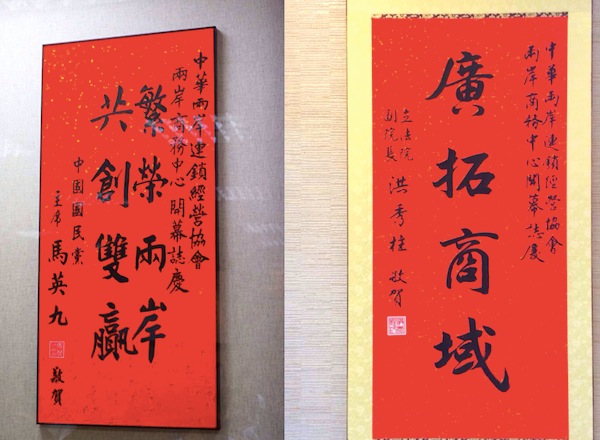 中華兩岸連鎖經營協會
兩岸商務中心開幕誌慶
繁榮兩岸
共創雙贏
中國國民黨
主席 馬英九 敬賀
中華兩岸連鎖經營協會
兩岸商務中心開幕誌慶
廣拓商域
立法院
副院長 洪秀柱 敬賀